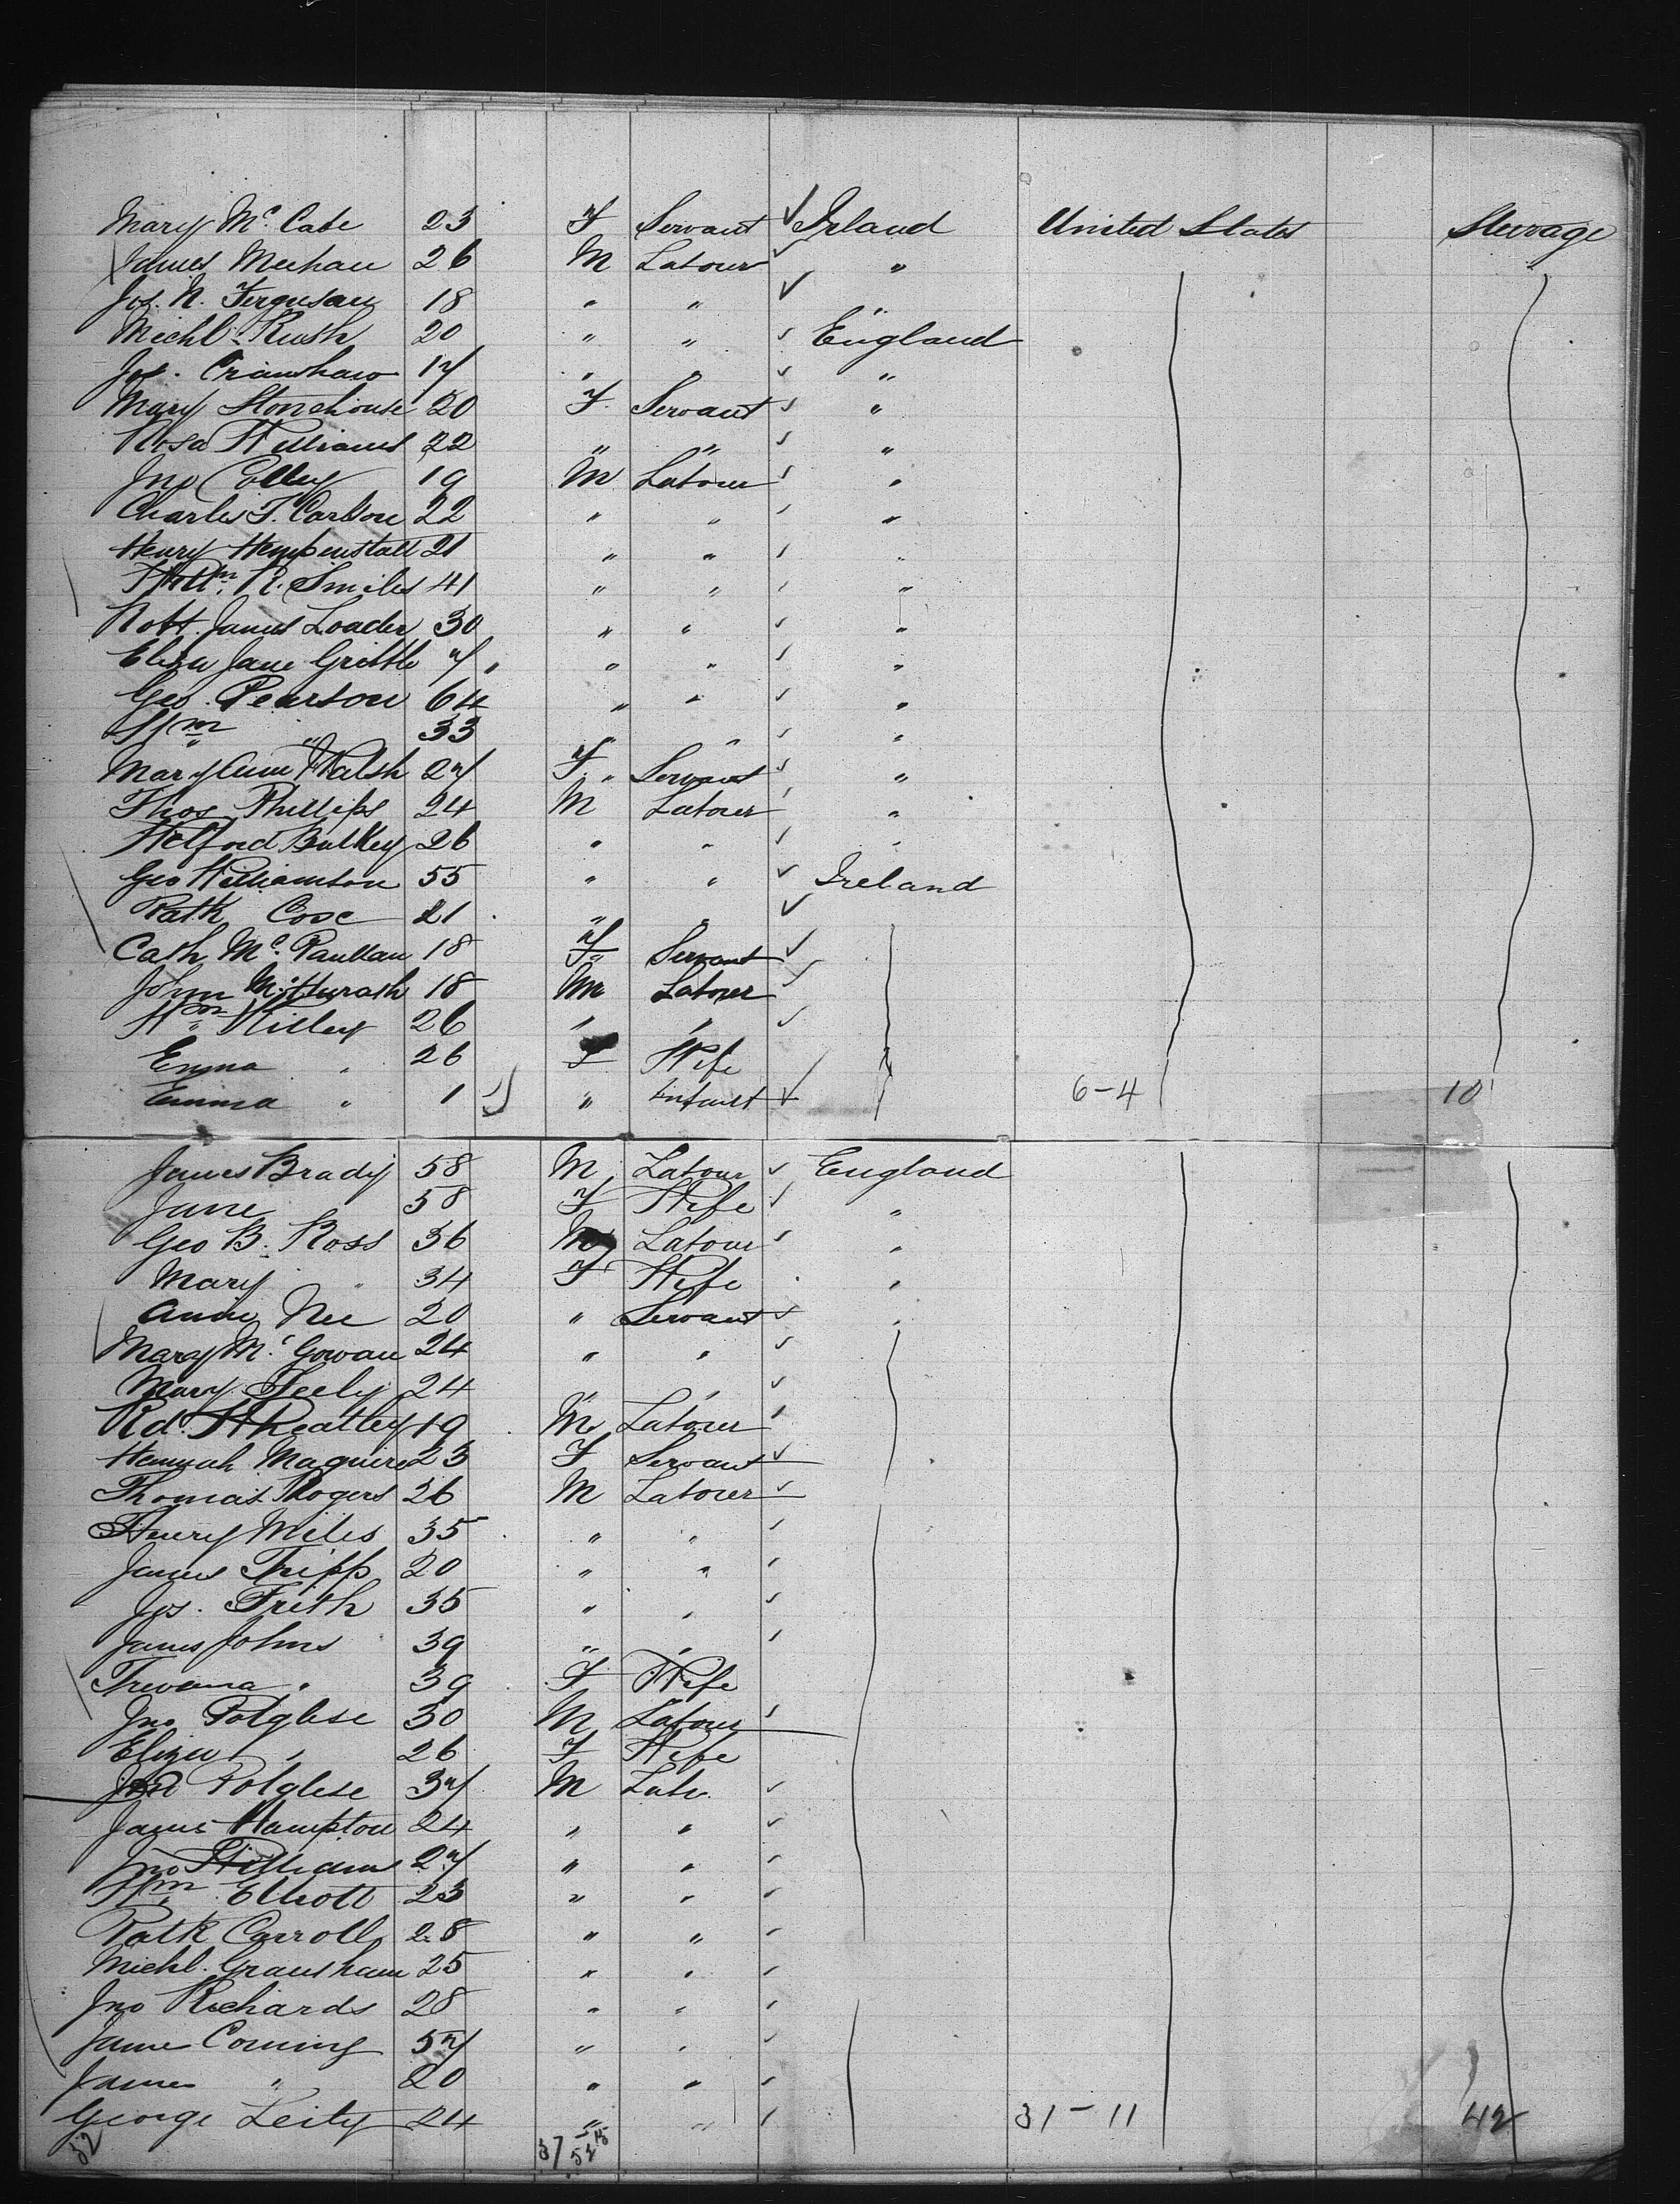 Mary Mc. Cabe 23 F Servant ✓ Ireland United States Steerage
James Meehan 26 M Labourer ✓ "
Jos. N. Ferguson 18 " " ✓ "
Michl. Rush 20 " " ✓ England
Jos. Cranshaw 17 " " ✓ "
Mary Stonehouse 20 F. Servant ✓ "
Rosa Williams 22 " " ✓ "
Jno Colley 19 M Labourer ✓ "
Charles F. Carlson 22 " " ✓ "
Henry Hempenstall 21 " " ✓ "
Wm. R. Smiles 41 " " ✓ "
Robt. James Loader 30 " " ✓ "
Eliza Jane Grittle 7 " " " ✓ "
Geo. Pearson 64 " " ✓ "
Wm " 33 " " ✓ "
Mary Ann Walsh 27 F " Servant ✓ "
Thos Phillips 24 M Labourer ✓ "
Bulkey 26 " " ✓ "
Geo Williamson 55 " " ✓ Ireland
Patk 21 " " ✓
Cath Mc. 18 F Servant ✓
John 18 M Labourer ✓
Wm 26 " " ✓
Emma " 26 F Wife
Emma " 1 " Infant ✓ 6-4 10
James Brady 58 M Labour ✓ England
Jane 58 F Wife ✓ "
Geo B. Ross 36 M Labour ✓ "
Mary " 34 F Wife "
Annie Nee 20 " Servant ✓ "
Mary Mc. Gowan 24 " " ✓
Mary Feely 24 " " ✓
Rd. Wheatley 19 M Labourer ✓
Hannah Maguire 23 F Servant ✓
Thomas Rogers 26 M Labourer ✓
Henry Miles 35 " " ✓
James Tripp 20 " " ✓
Jos. Frith 35 " " ✓
James Johns 39 " " ✓
" 39 F Wife
Jno Polglese 30 M Labour ✓
Eliza " 26 F Wife
Polglese 37 M Labr. ✓
James Hampton 24 " " ✓
Jno Williams 27 " " ✓
Wm. Elliott 23 " " ✓
Patk Carroll 28 " " ✓
Michl. 25 " " ✓
Jno Richards 28 " " ✓
James Corning 57 " " ✓
James " 20 " " ✓
George Leity 24 " " ✓ 31-11 42
32 37